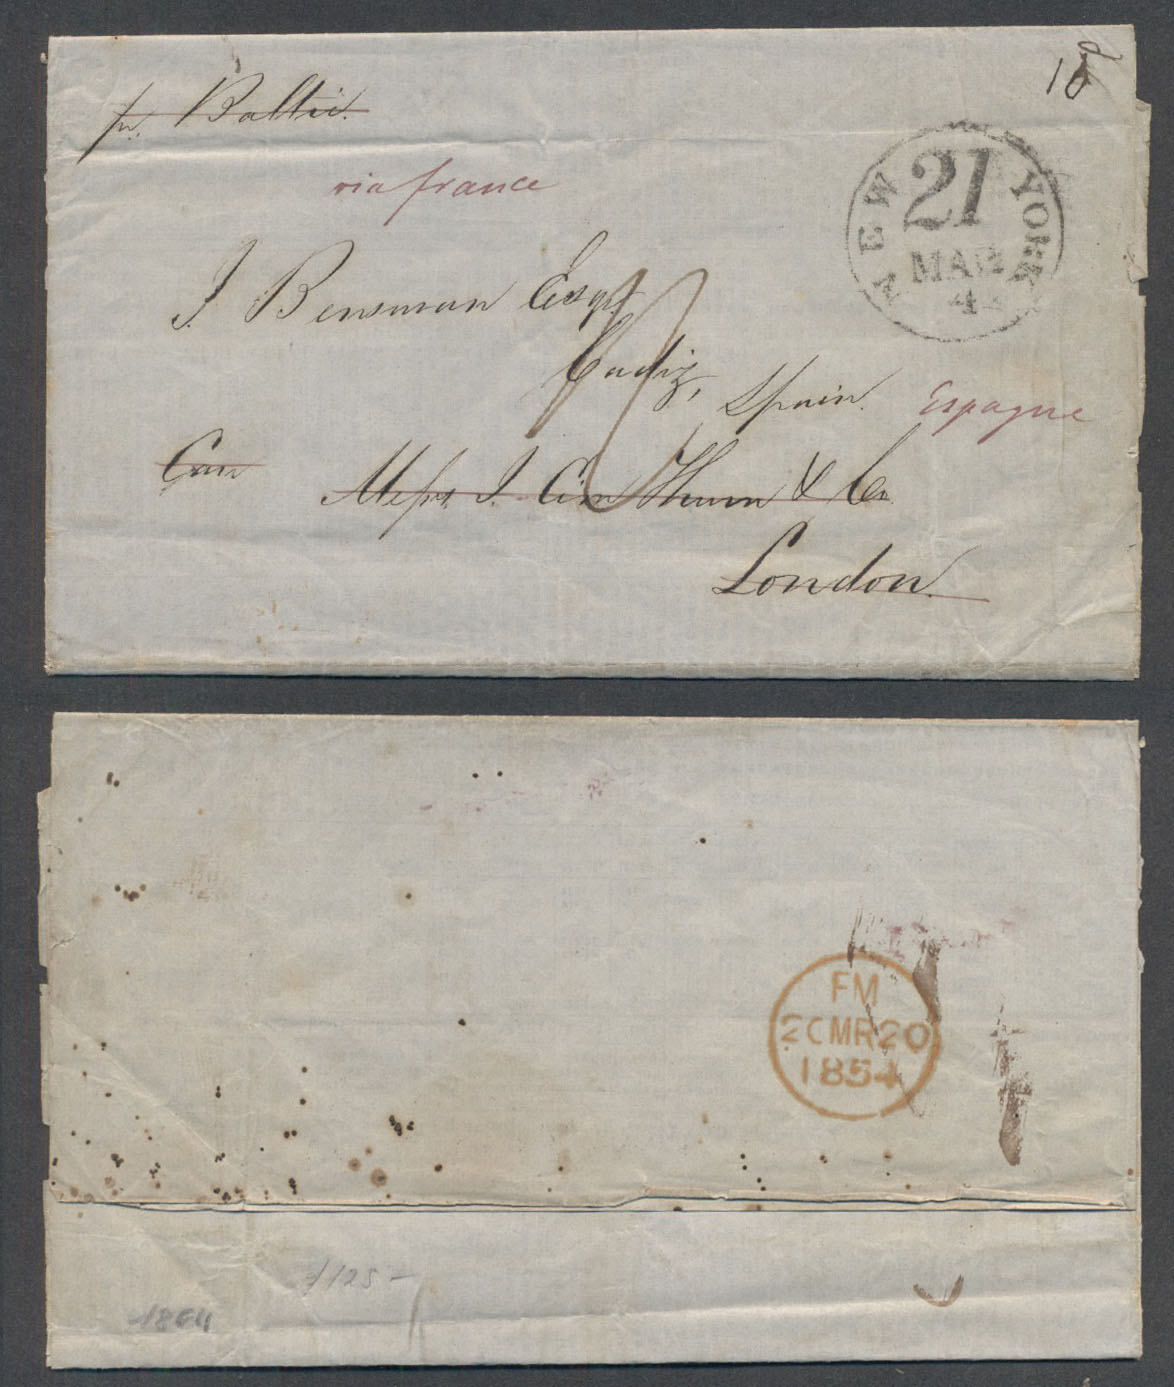 pr. Baltic.
via france
18
NEW YORK
21
MAR
4
J. Bensman Esqr
Cadiz,
Spain. Espagne
Care
Messrs J. Thurn & Co
London.
FM
20MR20
1854
1125-
1864